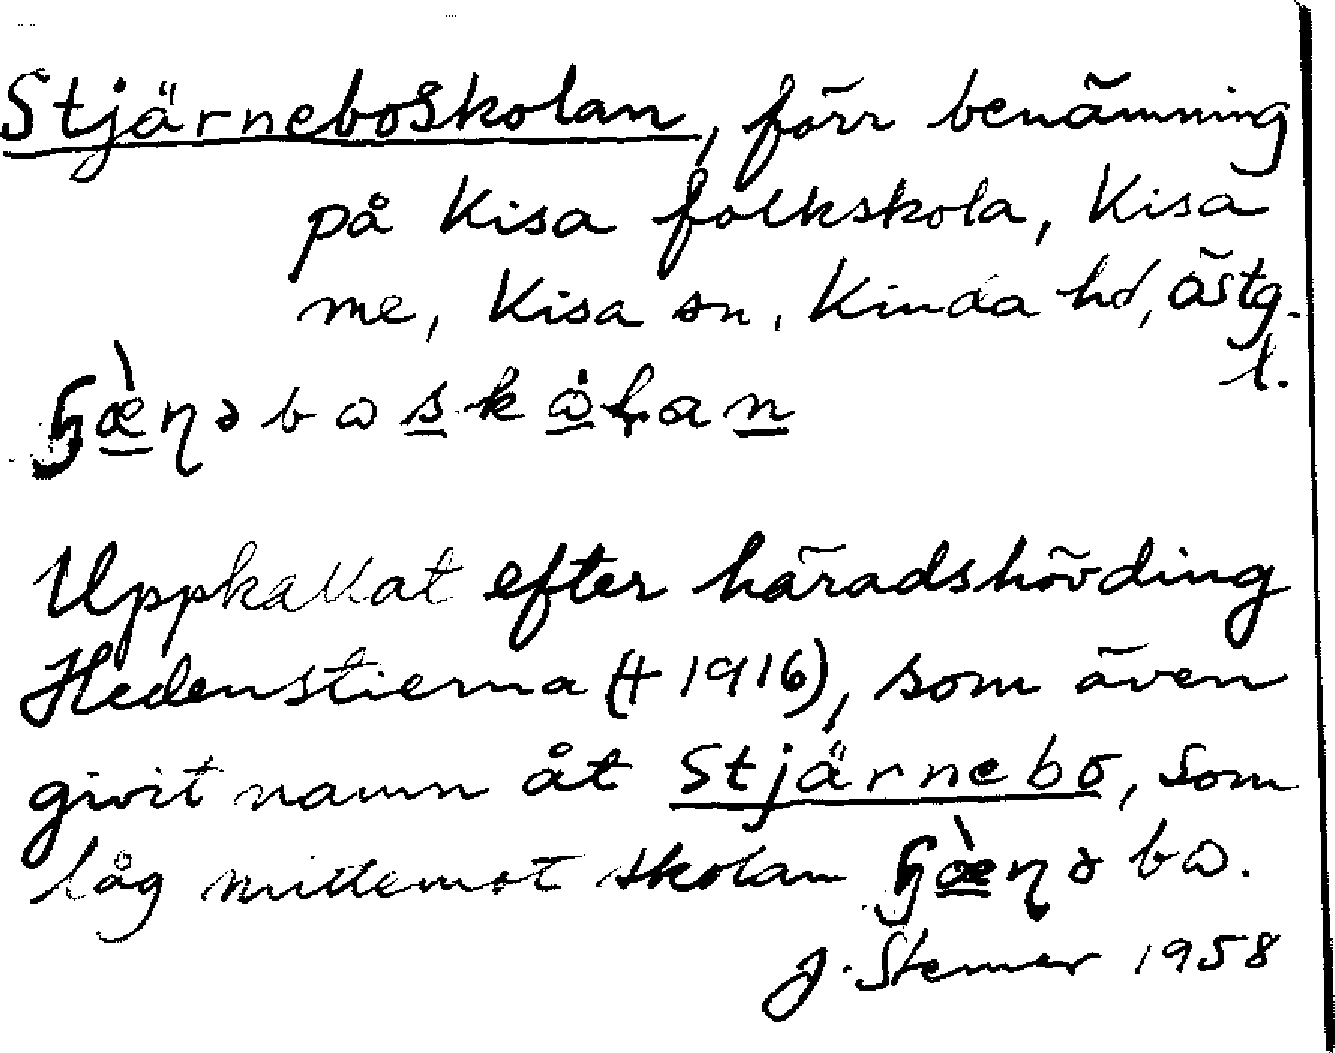 Stjärneboskolan, förr benämning
på Kisa folkskola, Kisa
me, Kisa sn, Kinda hd, Östg.
l.
Uppkallat efter häradshövding
Hedenstierna († 1916), som även
givit namn åt Stjärnebo, som
låg mittemot skolan
J. 1958